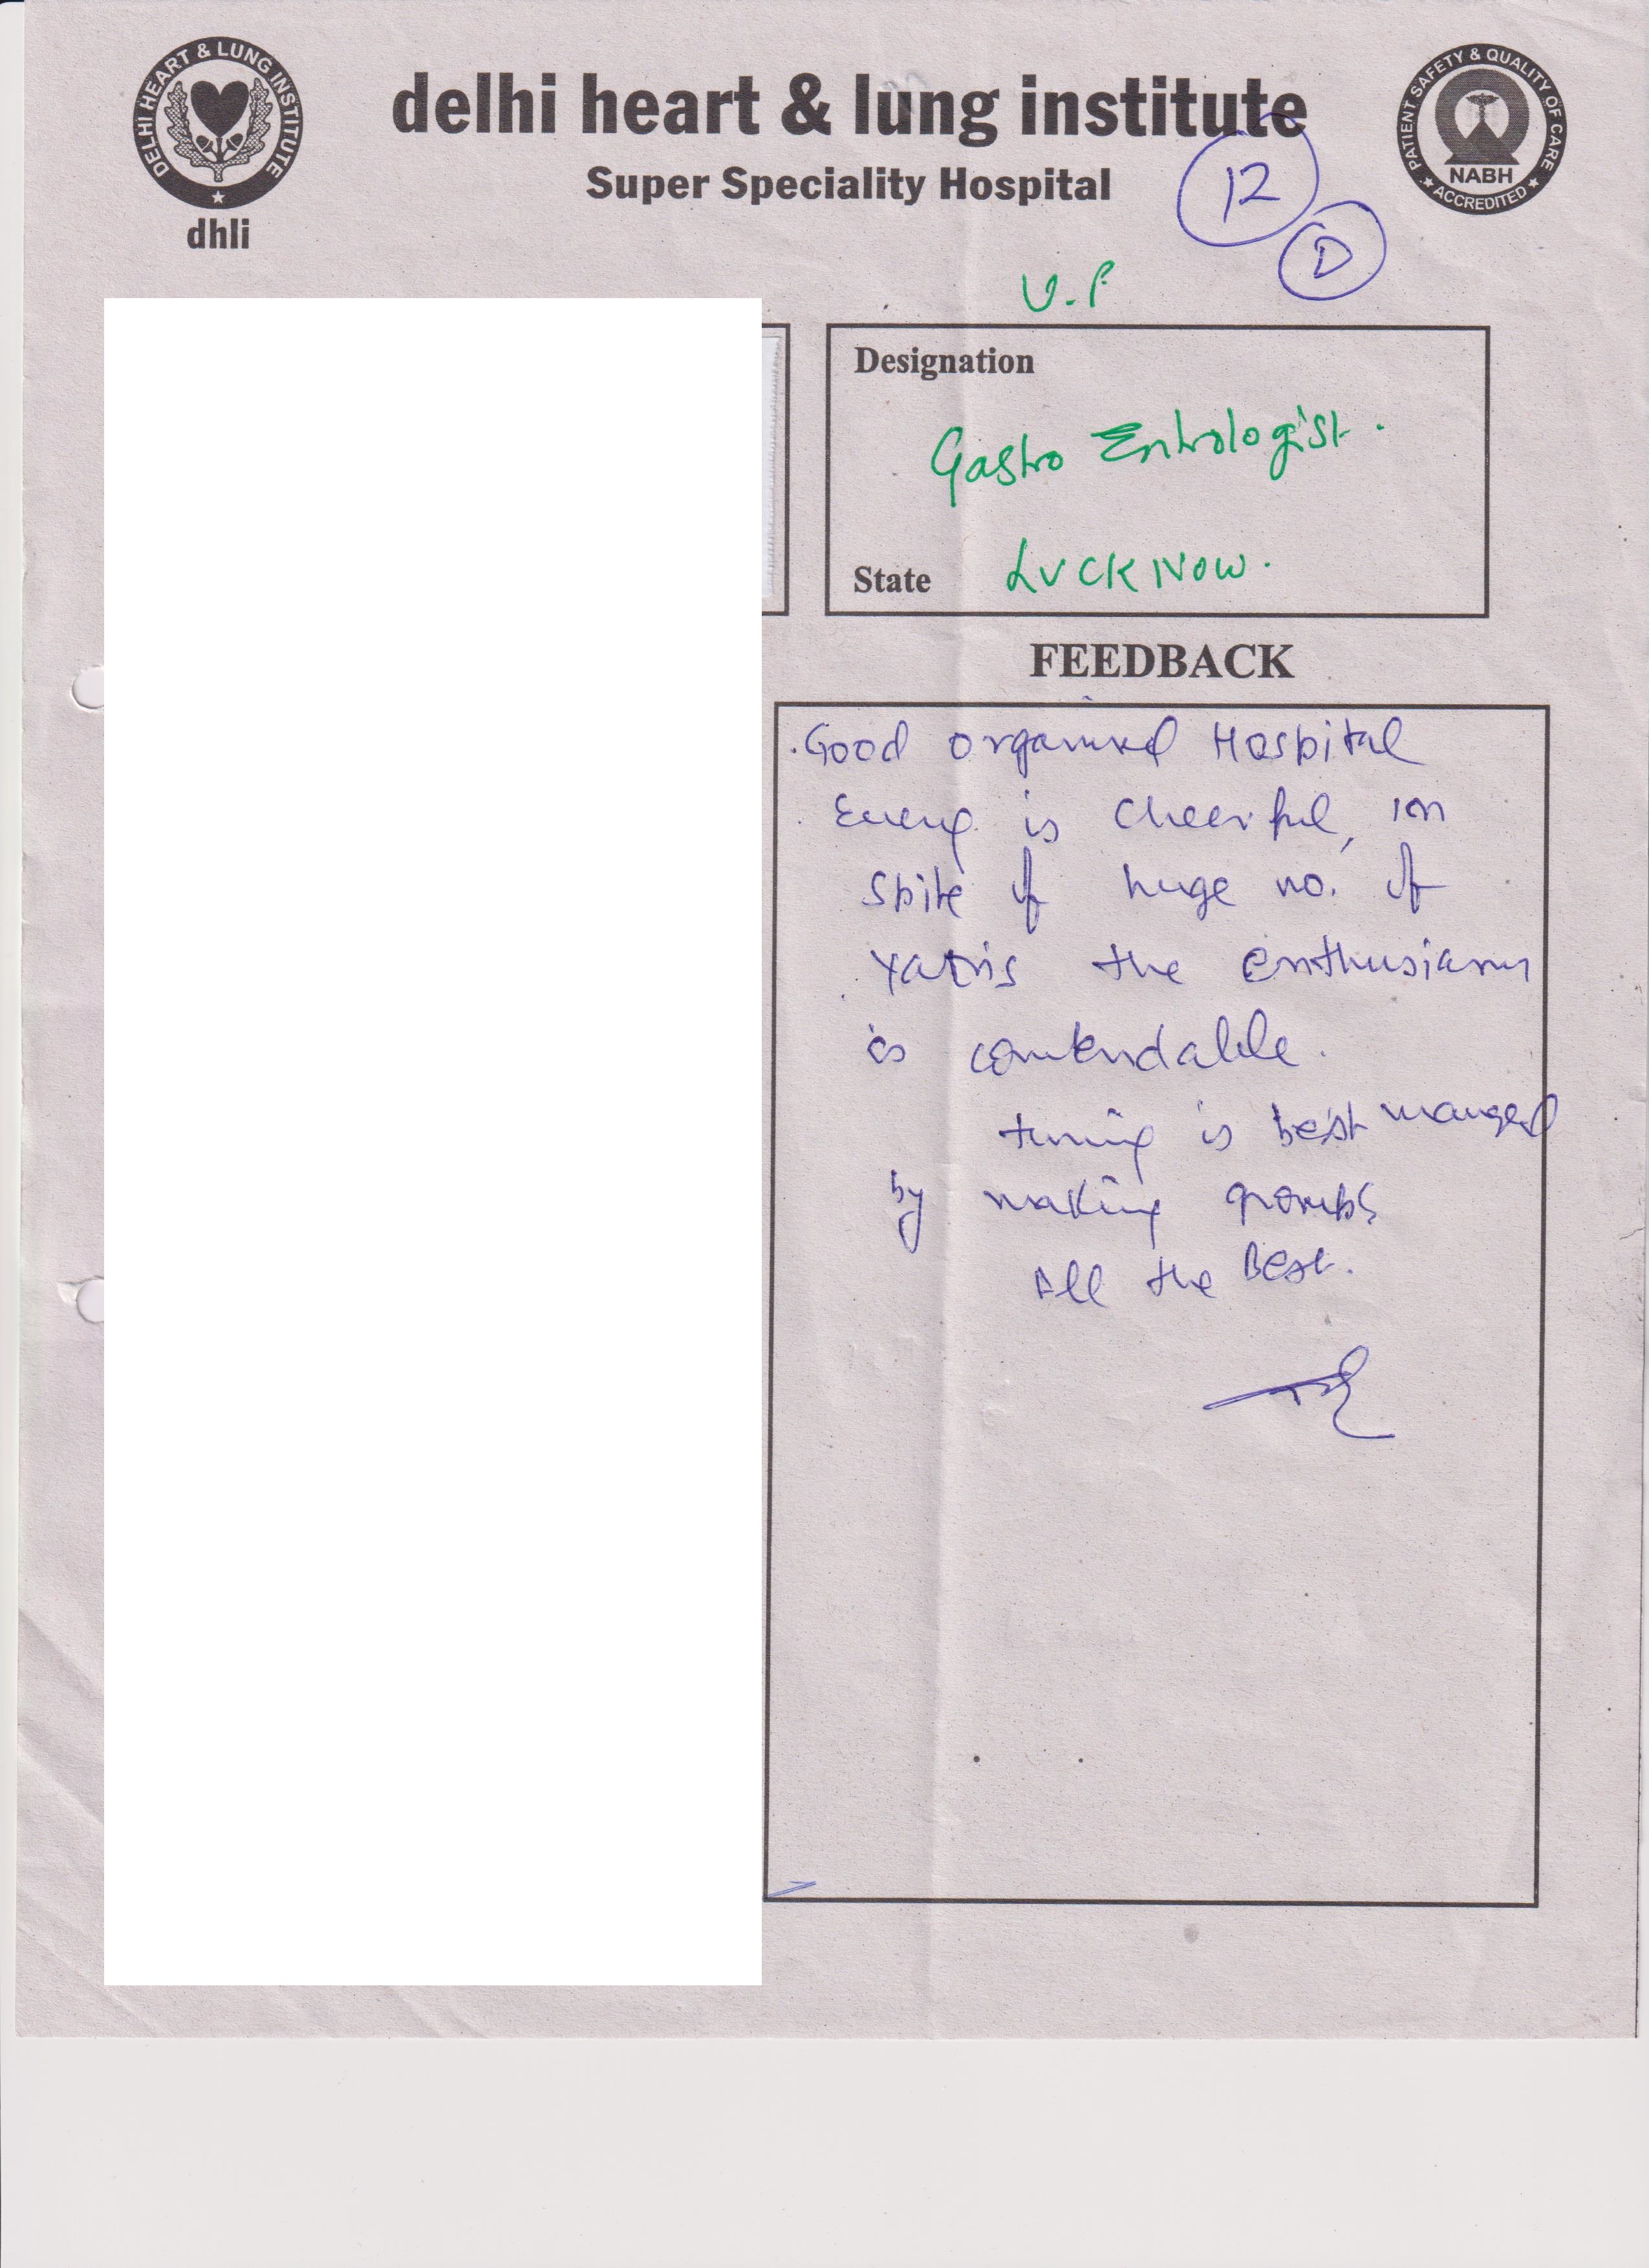 DELHI HEART & LUNG INSTITUTE
dhli
delhi heart & lung institute
Super Speciality Hospital
PATIENT SAFETY & QUALITY OF CARE
NABH
ACCREDITED
12
D
U.P
Designation
Gastro Entrologist.
State LUCKNOW.
FEEDBACK
Good organised Hospital
is cheerful, in
spite of huge no. of
Yatris the enthusiasm
is comendable.
timing is best manged
by making groups
All the Best.